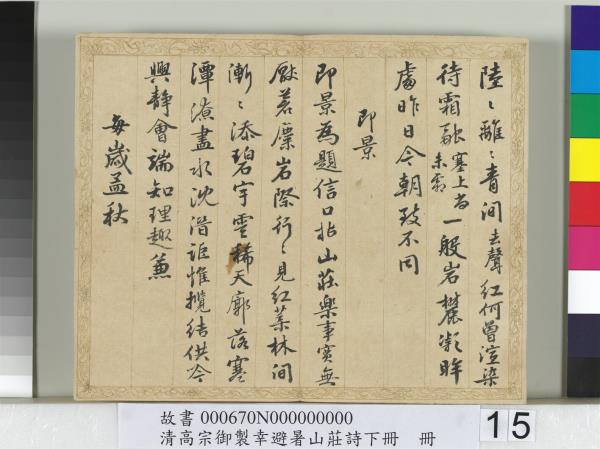 陸〻離〻青間去聲紅何曾渲染
待霜融塞上尚未霜一般岩麓凝眸
處昨日今朝致不同
即景
即景為題信口拈山莊樂事實無
厭若麃岩際行〻見紅葉林間
漸〻添碧宇雲稀天廓落寒
潭潦盡水沈潛詎惟攬結供吟
興靜會端知理趣兼
每歲孟秋
故書 000670N000000000
清高宗御製幸避暑山莊詩下冊 冊
15